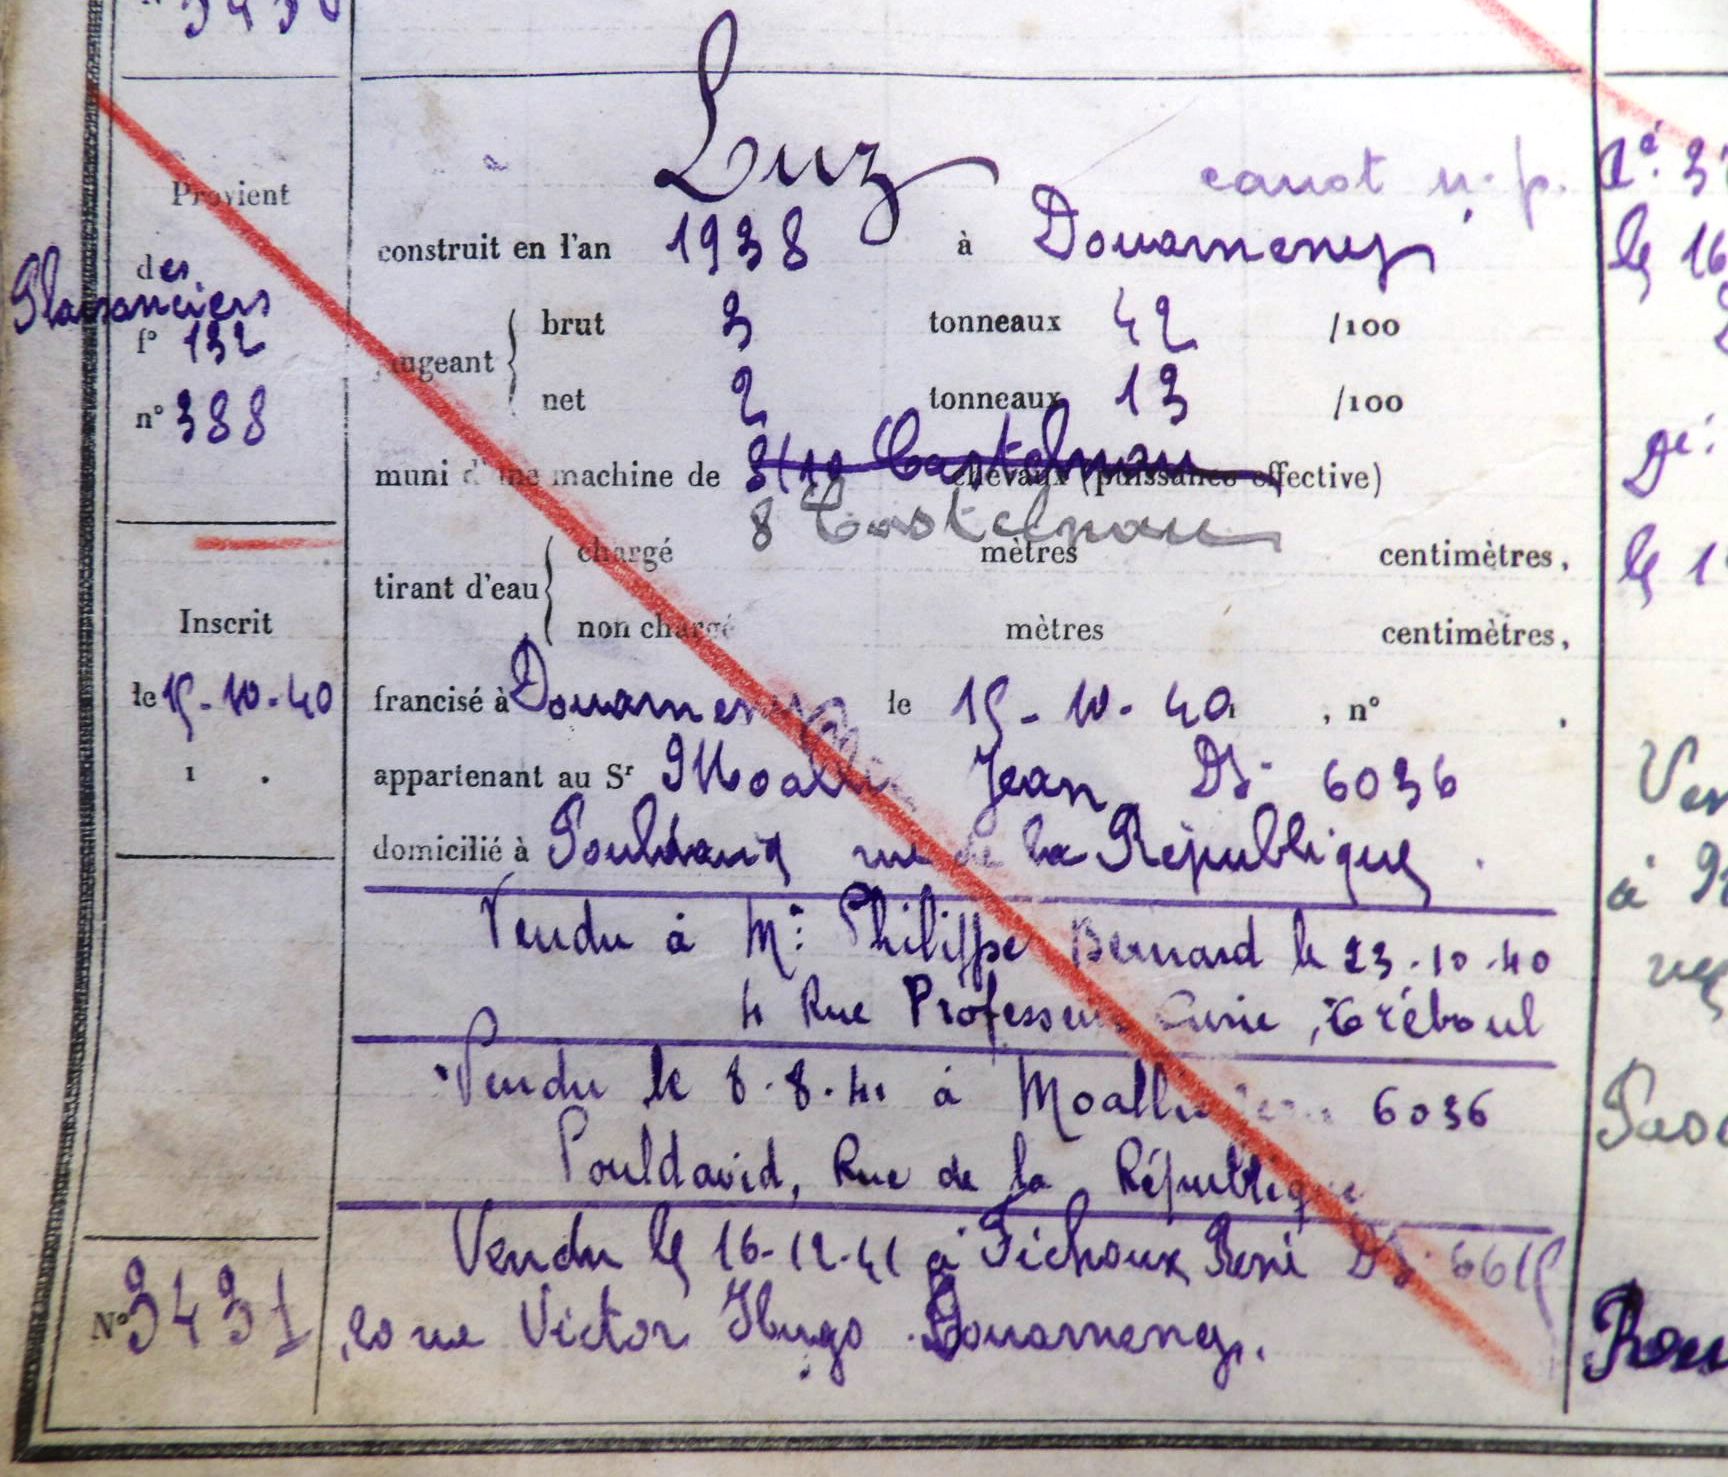 N° 3430
Luz
canot n. p.
Provient
des
Plaisanciers
f° 132
n° 388
construit en l'an 1938 à Douarnenez
jaugeant
brut 3 tonneaux 42 /100
net 2 tonneaux 13 /100
muni d'une machine de 8/10 Castelnau chevaux (puissance effective)
8 Castelnau
tirant d'eau
chargé mètres centimètres,
non chargé mètres centimètres,
Inscrit
le 15-10-40
1 .
francisé à Douarnenez le 15-10-40, n° ,
appartenant au Sr Moallic Jean Dz 6036
domicilié à Pouldavid rue de la République.
Vendu à Mr Philippe Bernard le 23.10.40
4 Rue Professeur Curie, Tréboul
Vendu le 8.8.41 à Moallic Jean 6036
Pouldavid, Rue de la République
Vendu le 16-12-41 à Fichoux René Dz 6615
20 rue Victor Hugo Douarnenez.
N° 3431
le 16
le 1
Ven
à